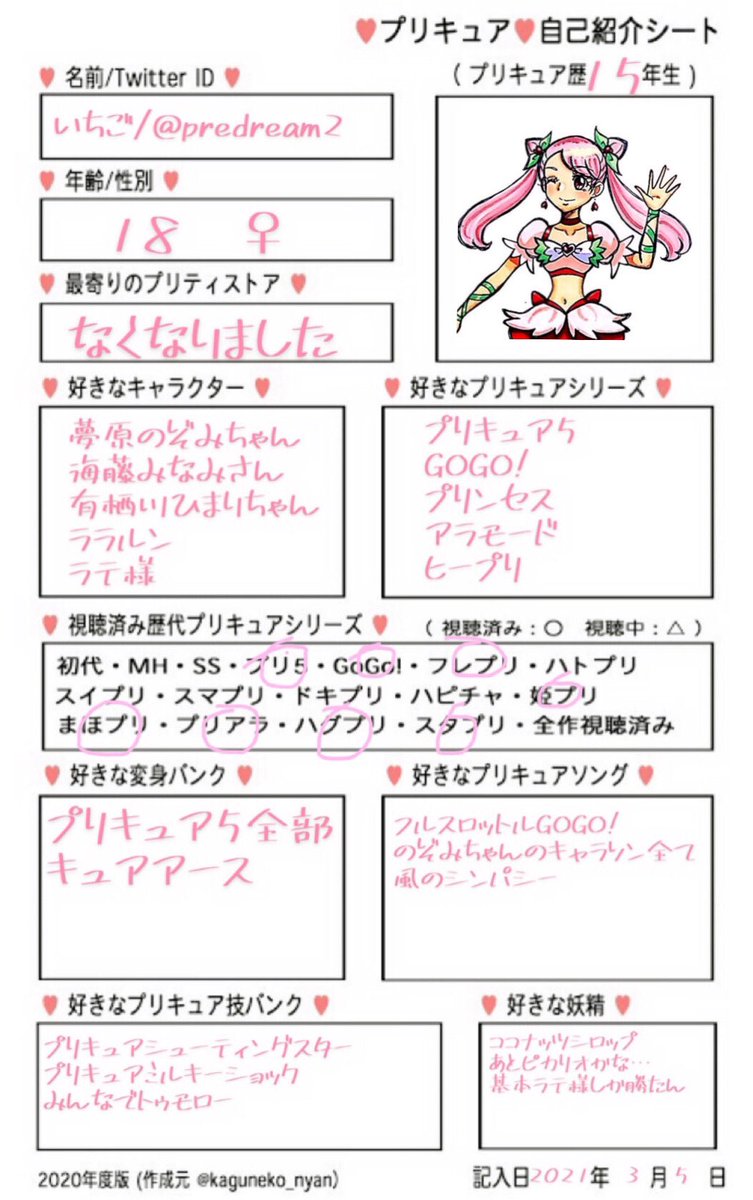 ♥プリキュア♥自己紹介シート
♥ 名前/Twitter ID ♥
( プリキュア歴15年生 )
いちご/@predream2
♥ 年齢/性別 ♥
18 ♀
♥ 最寄りのプリティストア ♥
なくなりました
♥ 好きなキャラクター ♥
夢原のぞみちゃん
海藤みなみさん
有栖川ひまりちゃん
ララルン
ラテ様
♥ 好きなプリキュアシリーズ ♥
プリキュア5
GOGO!
プリンセス
アラモード
ヒープリ
♥ 視聴済み歴代プリキュアシリーズ ♥ ( 視聴済み：○ 視聴中：△ )
初代・MH・SS・プリ5・GoGo!・フレプリ・ハトプリ
スイプリ・スマプリ・ドキプリ・ハピチャ・姫プリ
まほプリ・プリアラ・ハグプリ・スタプリ・全作視聴済み
♥ 好きな変身バンク ♥
プリキュア5全部
キュアアース
♥ 好きなプリキュアソング ♥
フルスロットルGOGO!
のぞみちゃんのキャラソン全て
風のシンパシー
♥ 好きなプリキュア技バンク ♥
プリキュアシューティングスター
プリキュアミルキーショック
みんなでトゥモロー
♥ 好きな妖精 ♥
ココナッツシロップ
あとピカリオかな…
基本ラテ様しか勝たん
2020年度版 (作成元 @kaguneko_nyan)
記入日2021年 3月 5 日